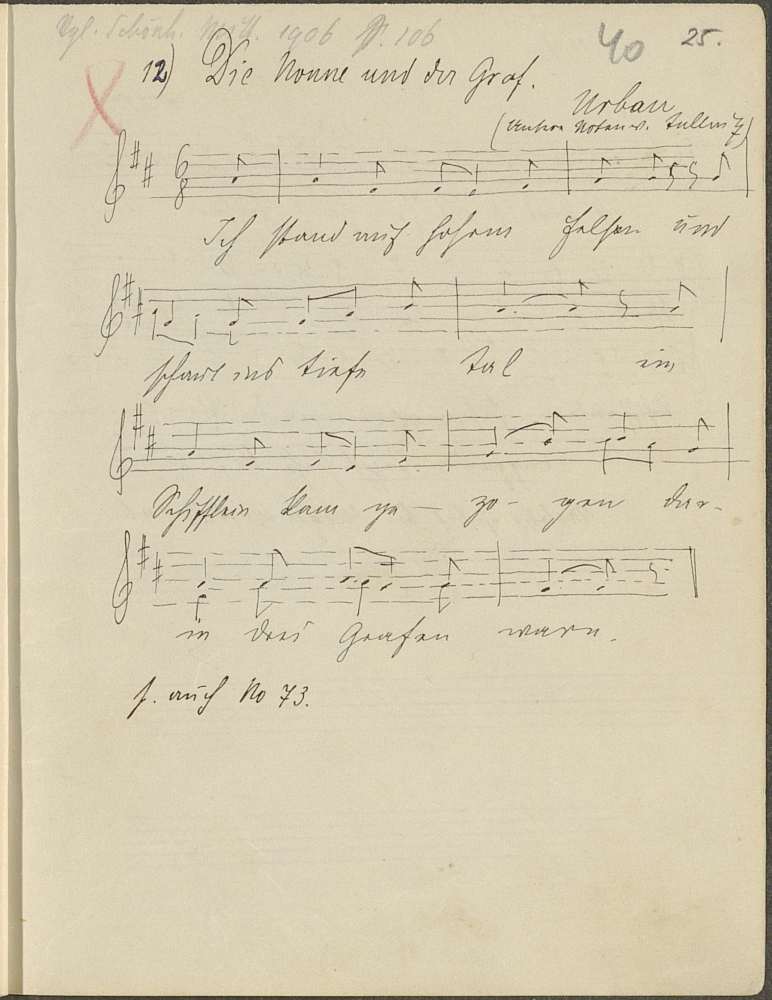 Vgl. Schönh. Mitt. 1906 S. 106
40 25.
12) Die Nonne und der Graf.
Urban
6
8
Ich stand auf hohem Felsen und
schaut ins tiefe Tal ein
Schifflein kam ge - zo - gen dar-
in drei Grafen warn.
s. auch No 73.